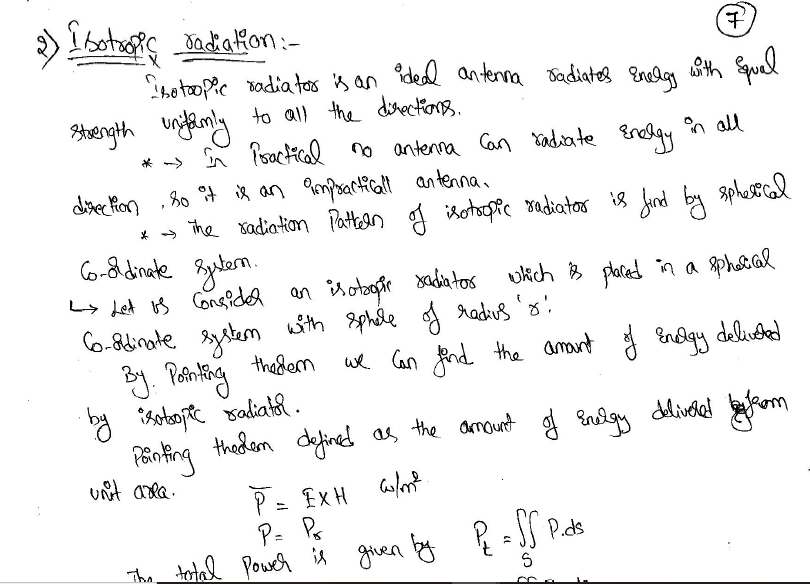 7
2) Isotropic radiation:-
Isotropic radiator is an ideal antenna radiates energy with equal
strength uniformly to all the directions.
* → In Practical no antenna can radiate energy in all
direction, so it is an impracticall antenna.
* → The radiation Pattern of isotropic radiator is find by spherical
Co-ordinate system.
↳ Let us Consider an isotropic radiator which is placed in a spherical
Co-ordinate system with sphere of radius 'r'.
By Pointing theorem we can find the amount of energy delivered
by isotropic radiator.
Pointing theorem defined as the amount of energy delivered from
unit area.
P̅ = E×H w/m²
P = Pr
The total power is given by Pt = ∬ P.ds
S